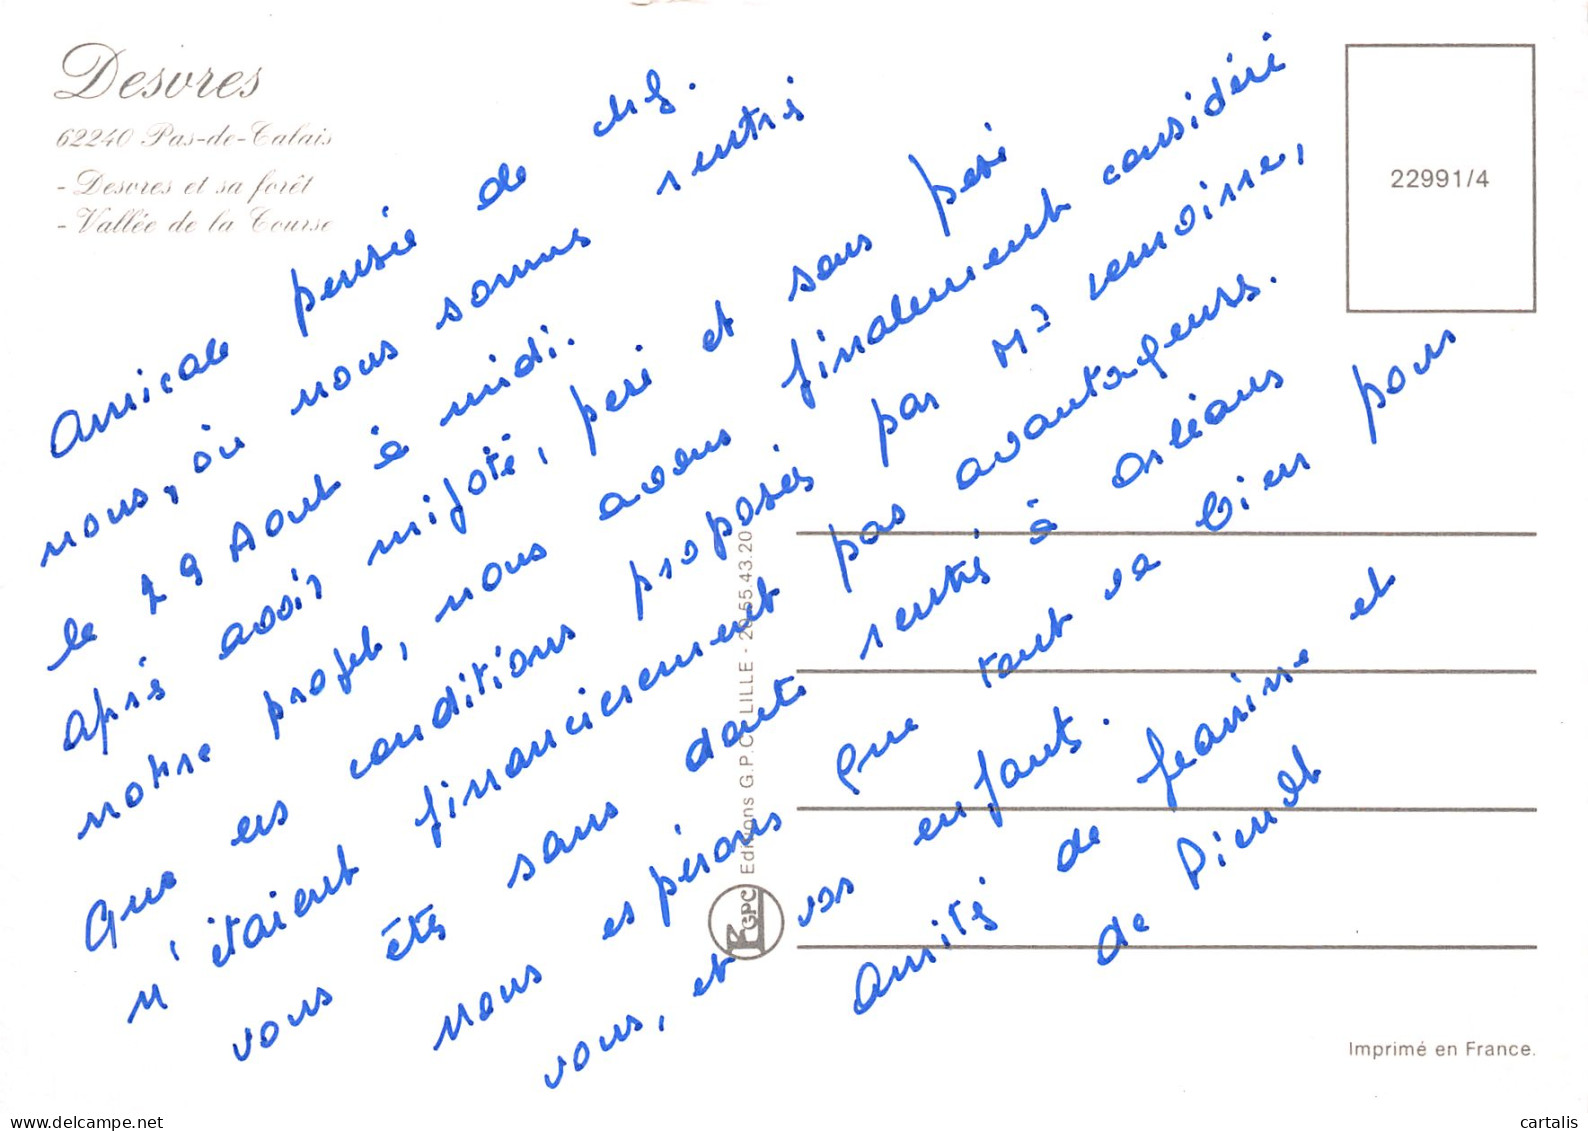 Desvres
62240 Pas-de-Calais
- Desvres et sa forêt
- Vallée de la Course
22991/4
Amicale pensée de chez
nous, où nous sommes rentrés
le 29 Août à midi.
Après avoir mijoté, pesé et sous pesé
notre projet, nous avons finalement considéré
que les conditions proposées par Mr Lemoisne,
n'étaient financièrement pas avantageuses.
vous êtes sans doute rentrés à Orléans
nous espérons que tout va bien pour
vous, et vos enfants.
Amitiés de Jeanine et
de Pierrot
Editions G.P.C. LILLE - 20.55.43.20
GPC
Imprimé en France.
cartalis
delcampe.net